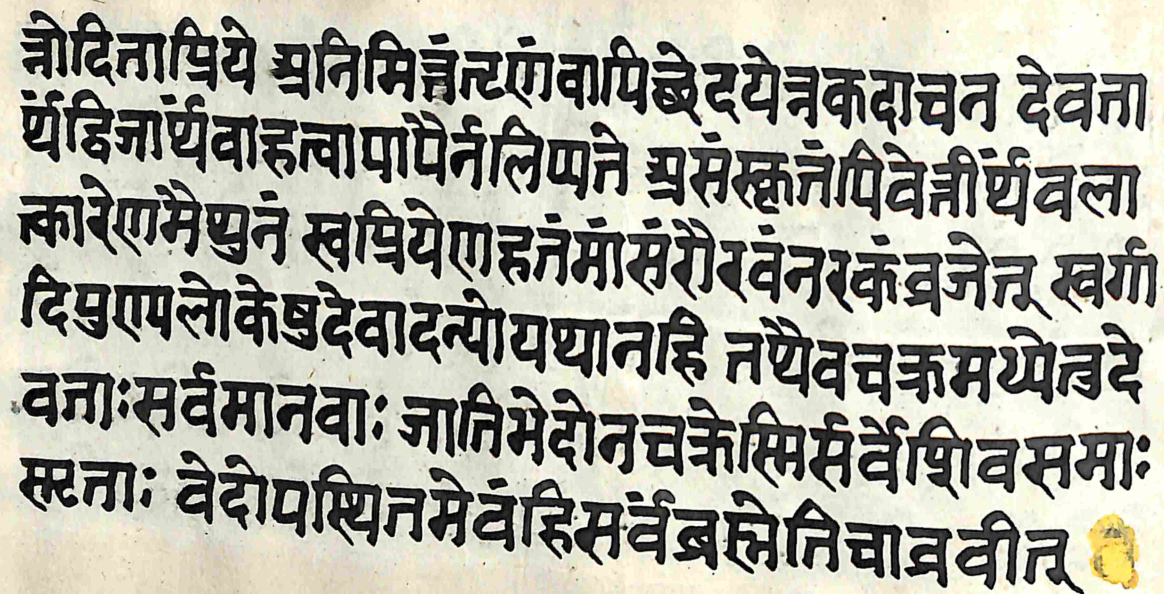 त्रोदिताप्रिये अनिमित्तंतृणंवापिच्छेदयेन्नकदाचन देवता
र्थंद्विजार्थंवाहत्वापापैर्नलिप्यते असंस्कृतंपिवेत्तीर्थंवला
त्कारेणमैथुनं स्वप्रियेणहतंमांसंरौरवंनरकंव्रजेत् स्वर्गा
दिपुण्यलोकेषुदेवादन्योयथानहि तथैवचक्रमध्येतुदे
वताःसर्वमानवाः जातिभेदोनचक्रेस्मिर्सर्वेशिवसमाः
स्मृताः वेदोपस्थितमेवंहिसर्वंब्रह्मेतिचाव्रवीत्